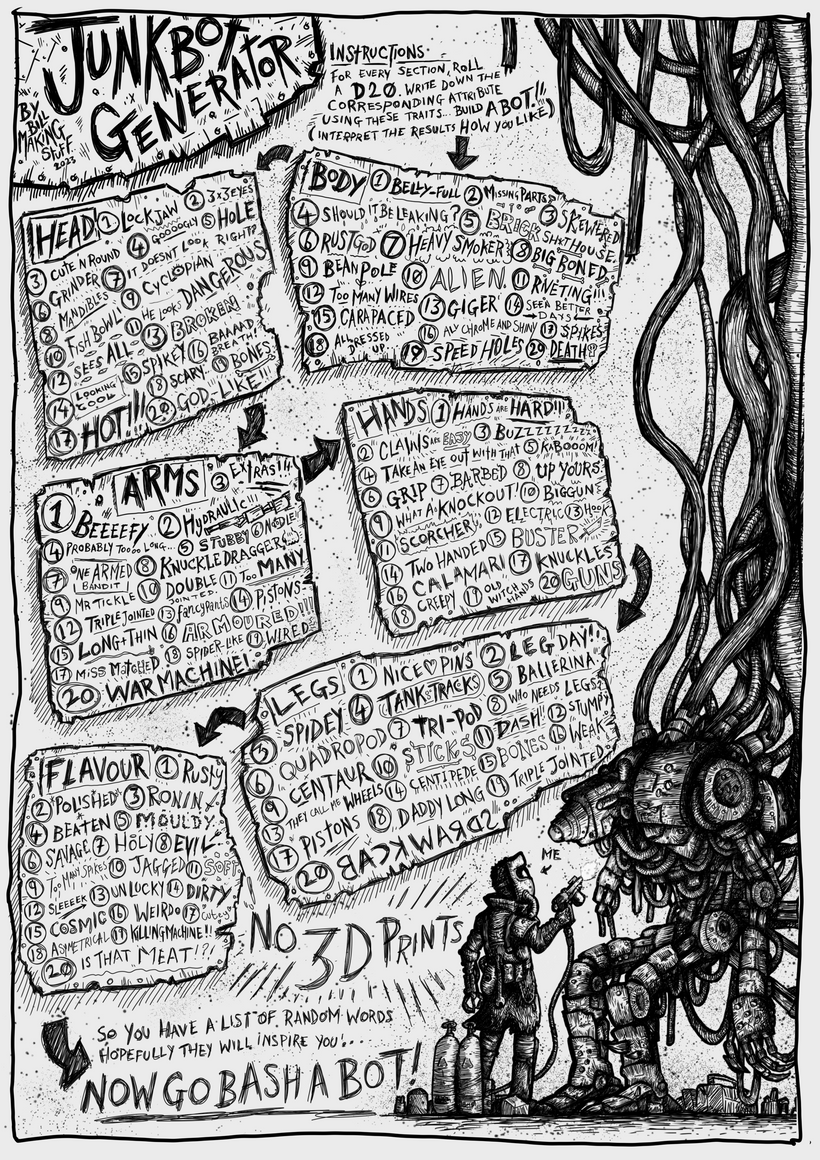 JUNKBOT
GENERATOR
BY
BILL
MAKING
STUFF
2023
INSTRUCTIONS.
FOR EVERY SECTION, ROLL
A D20. WRITE DOWN THE
CORRESPONDING ATTRIBUTE
USING THESE TRAITS... BUILD A BOT!!
(INTERPRET THE RESULTS HOW YOU LIKE)
BODY 1 BELLY-FULL 2 MISSING PARTS
3 SKEWERED
4 SHOULD IT BE LEAKING? 5 BRICK SH*T HOUSE.
6 RUST GOD 7 HEAVY SMOKER 8 BIG BONED.
9 BEAN POLE 10 ALIEN. 11 RIVETING!!!
12 TOO MANY WIRES 13 GIGER 14 SEEN BETTER DAYS
15 CARAPACED 16 ALL CHROME AND SHINY 17 SPIKES
18 ALL DRESSED UP 19 SPEED HOLES 20 DEATH
HEAD 1 LOCKJAW 2 3x3 EYES
3 CUTE N ROUND 4 GOOOOGLY 5 HOLE
6 GRINDER 7 IT DOESNT LOOK RIGHT?
8 MANDIBLES 9 CYCLOPIAN
10 FISH BOWL 11 HE LOOKS DANGEROUS
12 SEES ALL 13 BROKEN
14 LOOKING COOL 15 SPIKEY 16 BAAAAD BREATH
17 HOT!!! 18 SCARY 19 BONES
20 GOD LIKE!!
HANDS 1 HANDS ARE HARD!!!
2 CLAWS ARE EASY 3 BUZZZZZZZZ
4 TAKE AN EYE OUT WITH THAT 5 KABOOOM!
6 GRIP 7 BARBED 8 UP YOURS
9 WHAT A KNOCKOUT! 10 BIGGUN
11 SCORCHER 12 ELECTRIC 13 HOOK
14 TWO HANDED 15 BUSTER
16 CALAMARI 17 KNUCKLES
18 CREEPY 19 OLD WITCH HANDS 20 GUNS
ARMS
1 BEEEEFY 2 HYDRAULIC!!! 3 EXTRAS!!
4 PROBABLY TOOOO LONG... 5 STUBBY 6 NOODLE
7 ONE ARMED BANDIT 8 KNUCKLE DRAGGER
9 MR TICKLE 10 DOUBLE JOINTED 11 TOO MANY
12 TRIPLE JOINTED 13 fancypants 14 PISTONS
15 LONG+THIN 16 ARMOURED!!!
17 MISS MATCHED 18 SPIDER-LIKE 19 WIRED
20 WAR MACHINE!
LEGS 1 NICE PINS 2 LEG DAY!!
3 SPIDEY 4 TANK TRACKS 5 BALLERINA
6 QUADROPOD 7 TRI-POD 8 WHO NEEDS LEGS?
9 CENTAUR 10 STICKS 11 DASH!! 12 STUMPY
13 THEY CALL ME WHEELS 14 CENTIPEDE 15 BONES 16 WEAK
17 PISTONS 18 DADDY LONG 19 TRIPLE JOINTED
20 BACKWARDS
FLAVOUR 1 RUSTY
2 "POLISHED" 3 RONIN
4 BEATEN 5 MOULDY.
6 SAVAGE 7 HOLY 8 EVIL
9 TOO MANY SPIKES 10 JAGGED 11 SOFT
12 SLEEEEK 13 UNLUCKY 14 DIRTY
15 COSMIC 16 WEIRDO 17 Cutesy
18 ASYMETRICAL 19 KILLING MACHINE!!
20 IS THAT MEAT!?!
ME
NO 3D PRINTS
SO YOU HAVE A LIST OF RANDOM WORDS
HOPEFULLY THEY WILL INSPIRE YOU...
NOW GO BASH A BOT!